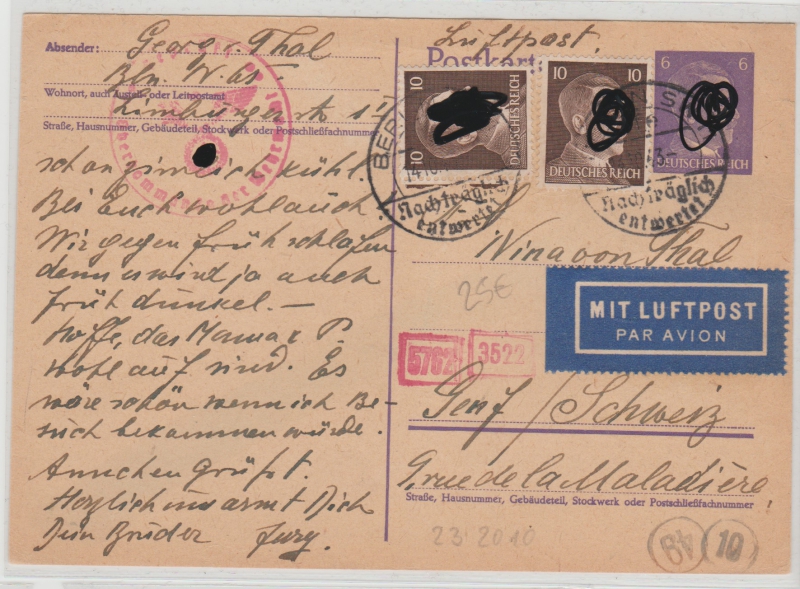 Absender: Georg v. Thal
Bln. W. 15.
Wohnort, auch Zustell- oder Leitpostamt
Straße, Hausnummer, Gebäudeteil, Stockwerk oder Postschließfachnummer
schon ziemlich kühl.
Bei Euch wohl auch.
Wir gegen früh schlafen
denn es wird ja auch
früh dunkel. —
Hoffe, das Mama x P.
wohl auf sind. Es
wäre schön wenn ich Be-
such bekommen würde.
Annchen Grüßt.
Herzlich umarmt Dich
Dein Bruder Jurg.
Luftpost.
Postkarte
10
10
DEUTSCHES REICH
10
10
DEUTSCHES REICH
6
6
BERLIN
Nachträglich
entwertet
Nachträglich
entwertet
Nina von Thal
25€
MIT LUFTPOST
PAR AVION
5762
3522
Genf / Schweiz
rue de la Maladière
Straße, Hausnummer, Gebäudeteil, Stockwerk oder Postschließfachnummer
23.2010
10